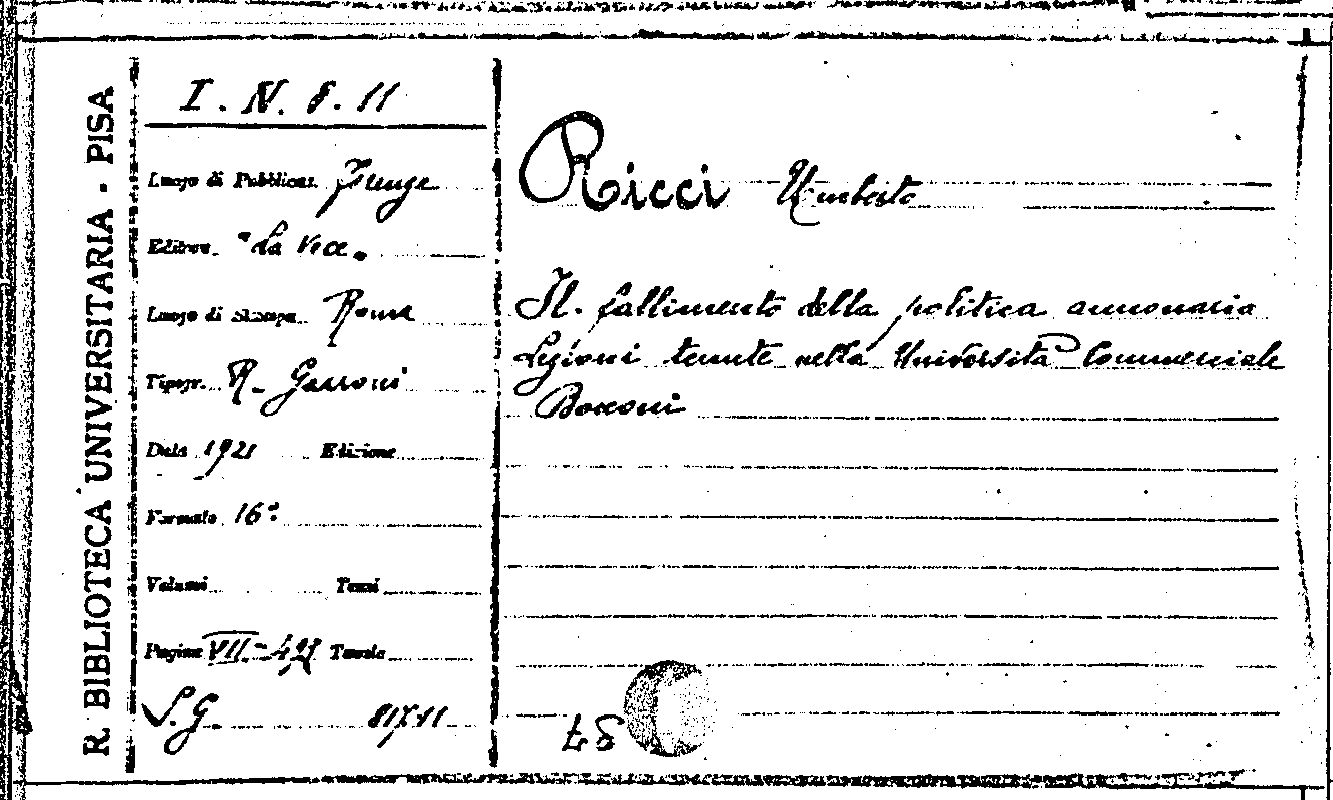 R. BIBLIOTECA UNIVERSITARIA - PISA
I. N. 8. 11
Luogo di Pubblicaz. Firenze
Editore "La Voce"
Luogo di Stampa Roma
Tipogr. R. Garroni
Data 1921 Edizione
Formato 16º
Volumi Tomi
Pagine VII- Tavole
S.G.
Ricci Umberto
Il fallimento della politica annonaria
Lezioni tenute nella Università Commerciale
Bocconi